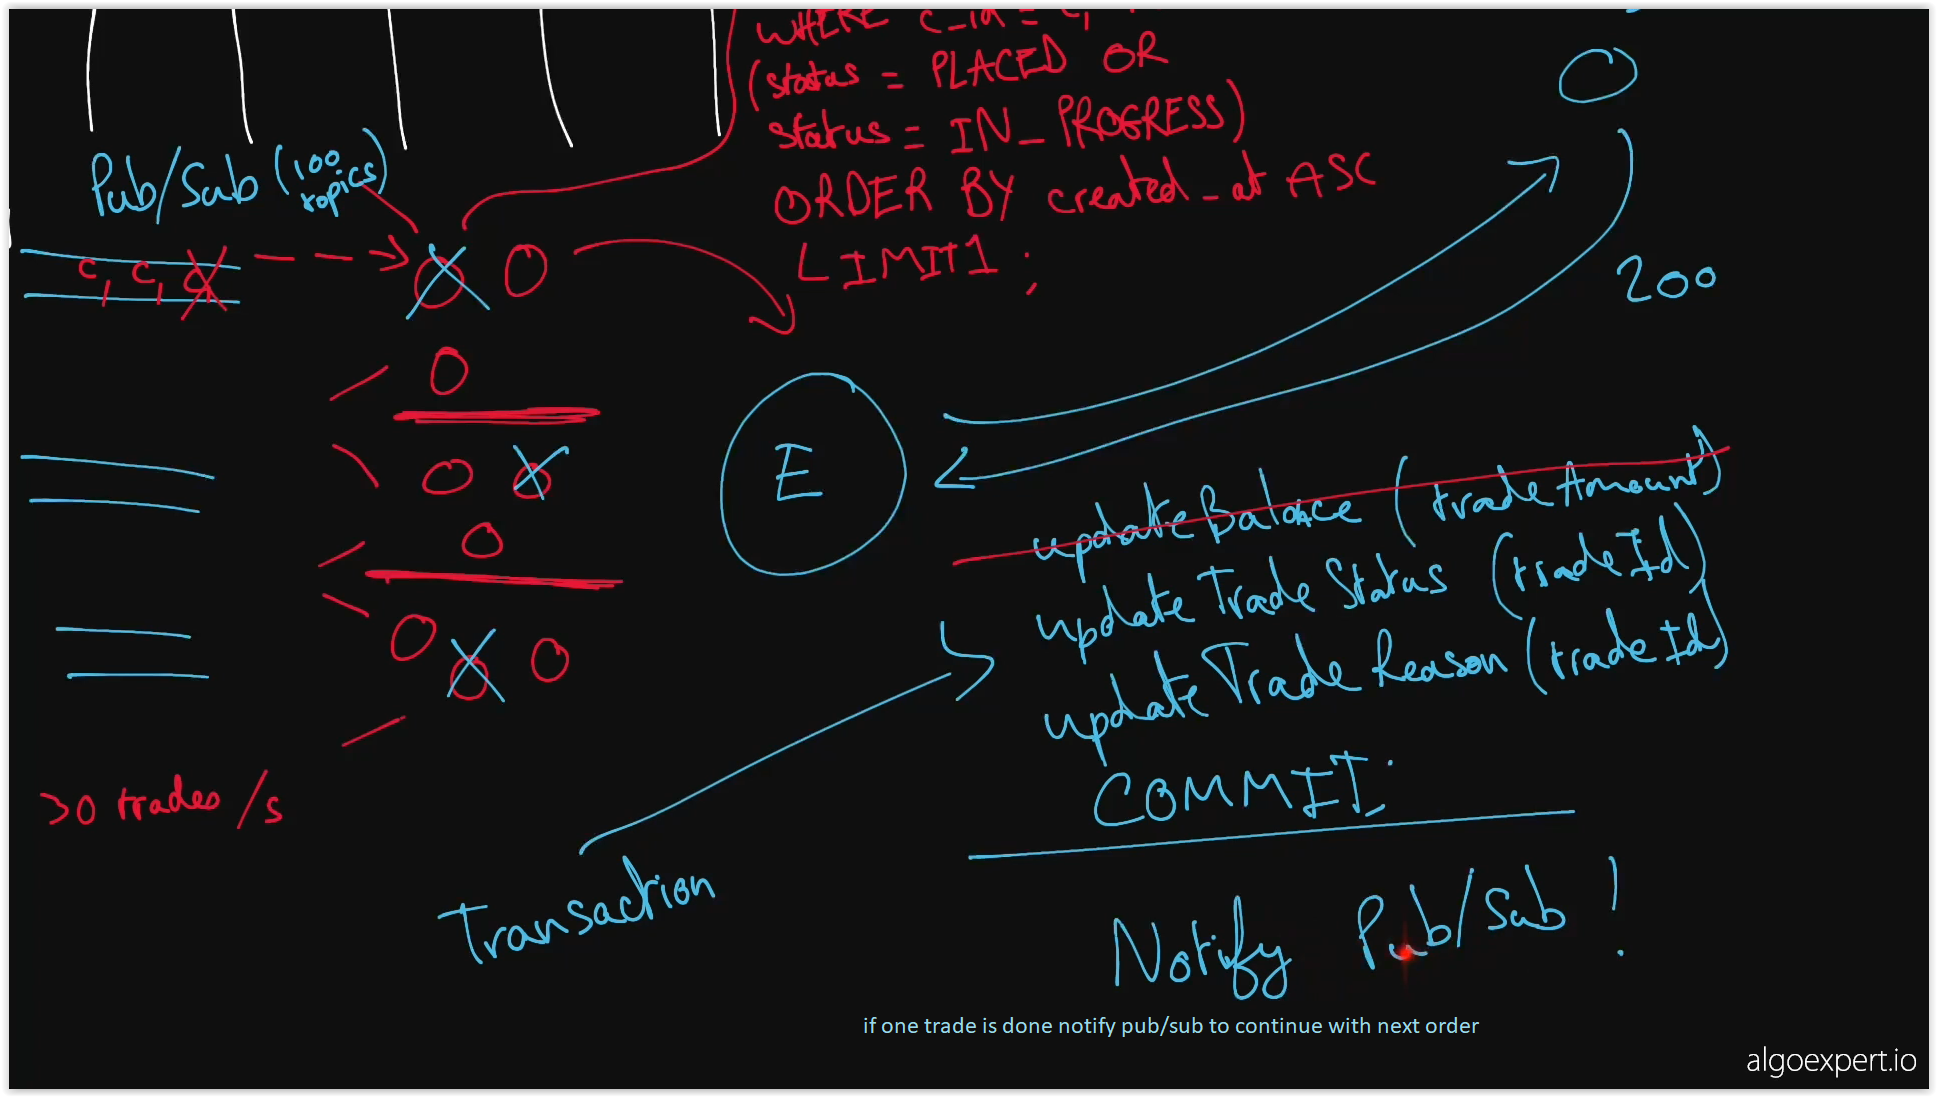 WHERE c_id = c,
(status = PLACED OR
status = IN_PROGRESS)
ORDER BY created_at ASC
LIMIT 1;
Pub/Sub (100 topics)
c, c, c
200
E
updateBalance (tradeAmount)
updateTradeStatus (tradeId)
updateTradeReason (tradeId)
COMMIT;
>0 trades/s
Transaction
Notify Pub/Sub!
if one trade is done notify pub/sub to continue with next order
algoexpert.io